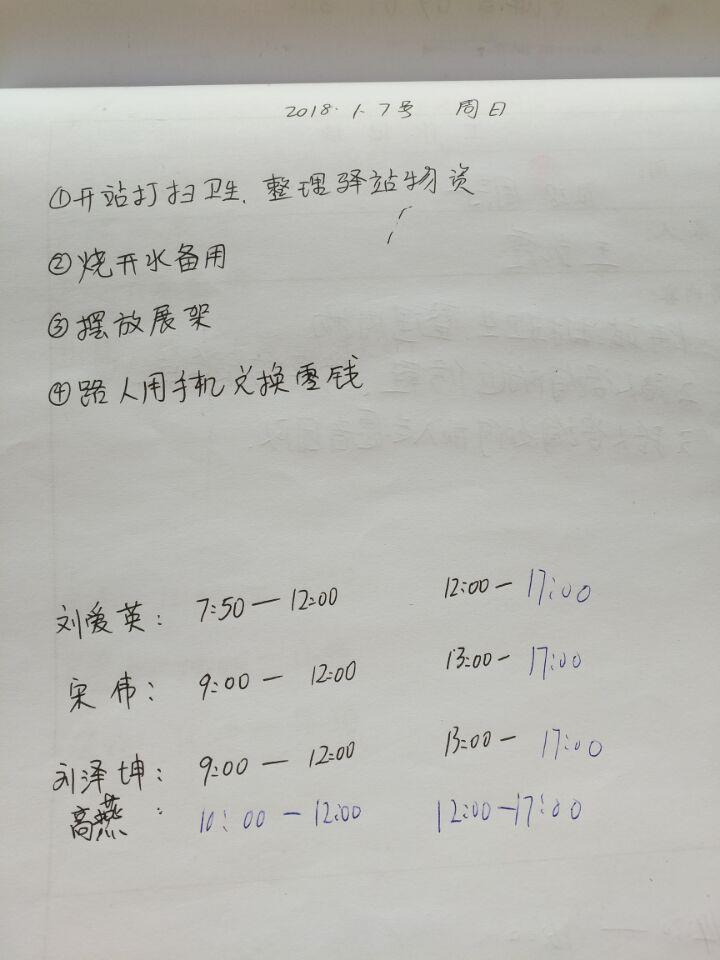 2018.1.7号 周日
①开站打扫卫生.整理驿站物资
②烧开水备用
③摆放展架
④路人用手机兑换零钱
刘爱英: 7:50—12:00 12:00—17:00
宋伟: 9:00—12:00 13:00—17:00
刘泽坤: 9:00—12:00 13:00—17:00
高燕: 10:00—12:00 12:00—17:00